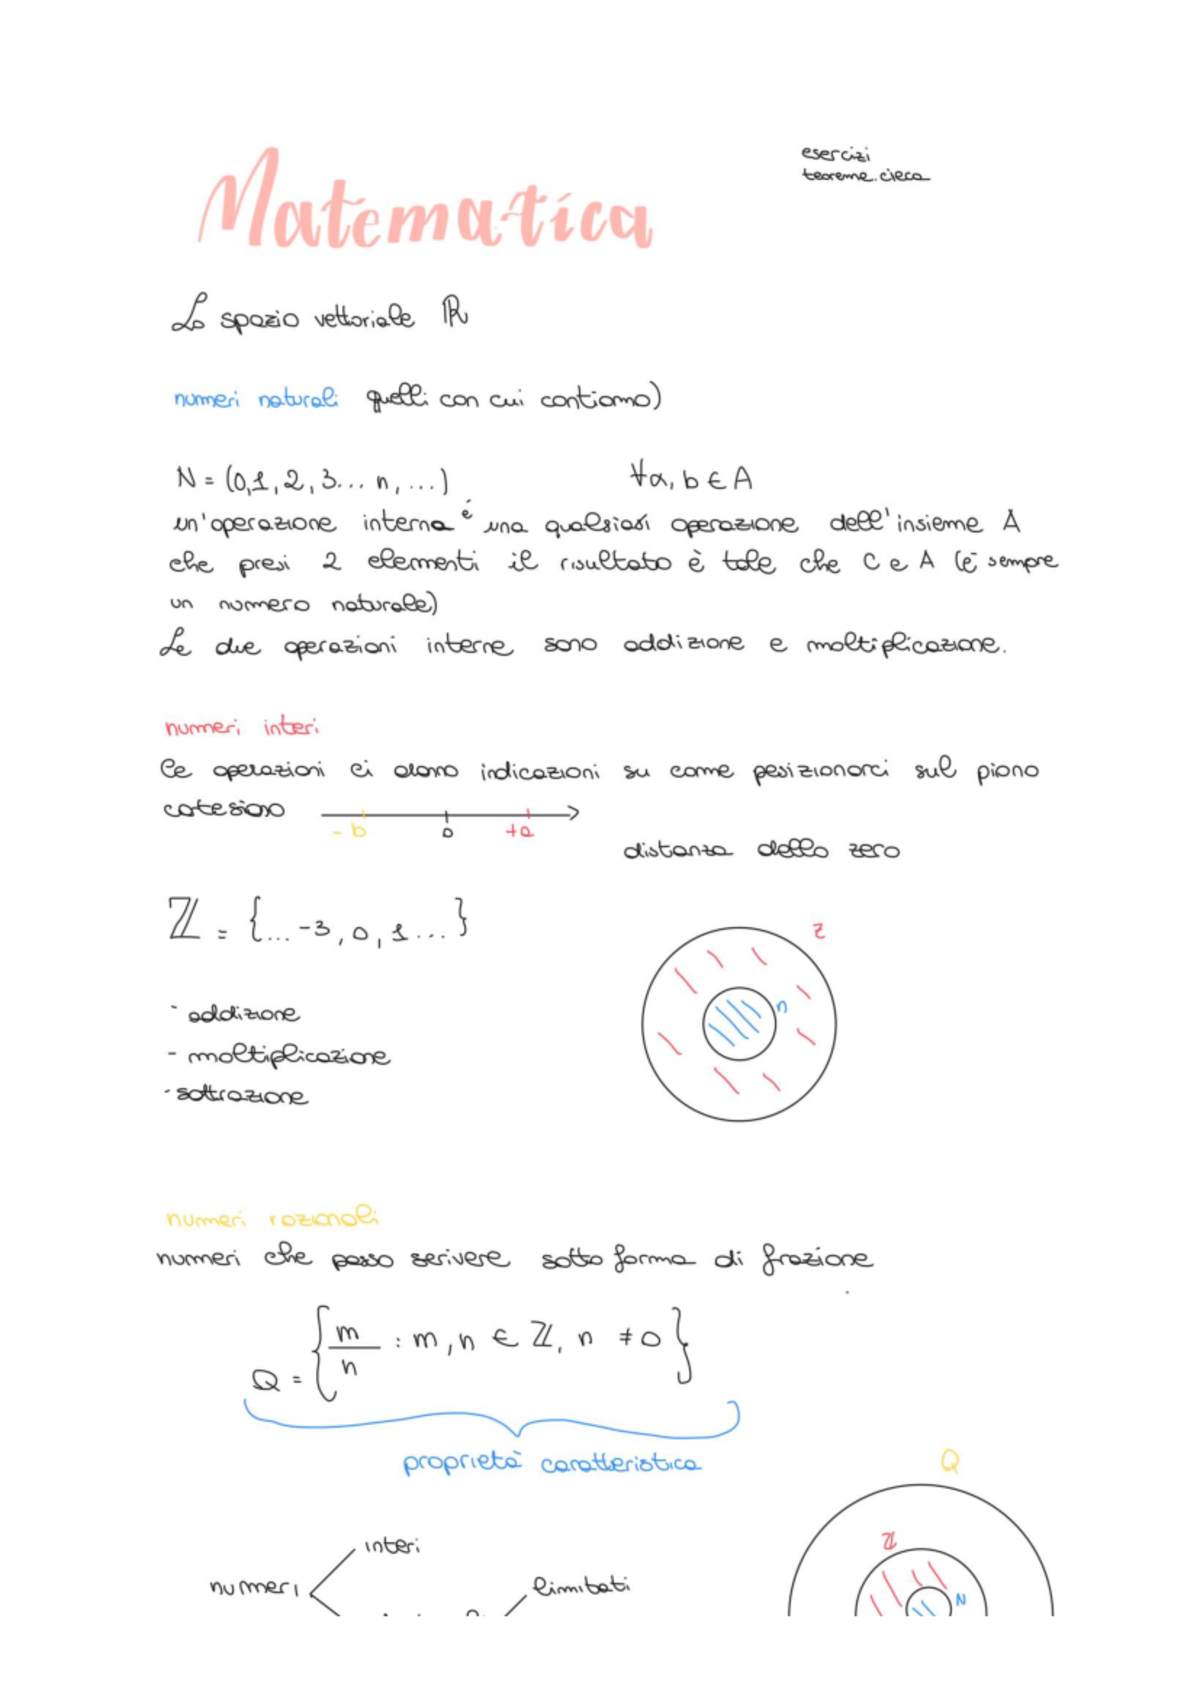 Matematica
esercizi
teoreme.cieca
Lo spazio vettoriale ℝ
numeri naturali quelli con cui contiamo)
N = (0,1,2,3... n, ...)
∀a, b ∈ A
un'operazione interna è una qualsiasi operazione dell'insieme A
che presi 2 elementi il risultato è tale che C e A (è sempre
un numero naturale)
Le due operazioni interne sono addizione e moltiplicazione.
numeri interi
le operazioni ci danno indicazioni su come posizionarci sul piano
cartesiano
-b 0 +a
distanza dallo zero
ℤ = {...-3, 0, 1...}
z
n
- addizione
- moltiplicazione
- sottrazione
numeri razionali
numeri che posso scrivere sotto forma di frazione
Q = { m/n : m, n ∈ ℤ, n ≠ 0 }
proprietà caratteristica
Q
ℤ
N
interi
numeri
limitati